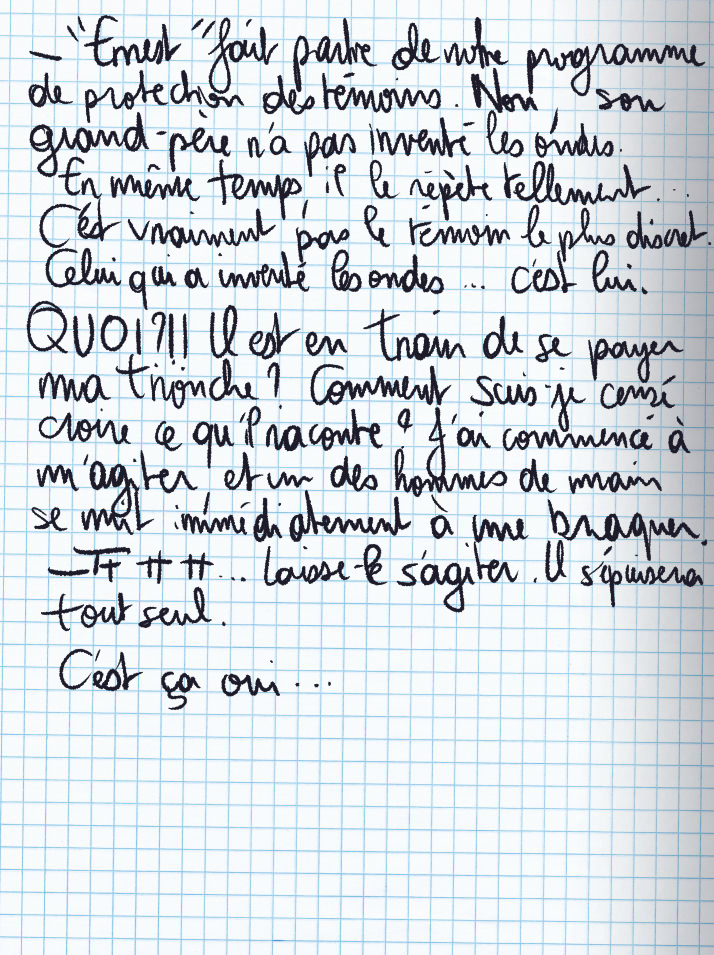 — "Ernest" fait partie de notre programme
de protection des témoins. Non, son
grand-père n'a pas inventé les ondes.
En même temps, il le répète tellement...
C'est vraiment pas le témoin le plus discret.
Celui qui a inventé les ondes... c'est lui.
QUOI?!! Il est en train de se payer
ma tronche? Comment suis-je censé
croire ce qu'il raconte? J'ai commencé à
m'agiter et un des hommes de main
se mit immédiatement à me braquer.
— Tt tt tt... laisse-le s'agiter. Il s'épuisera
tout seul.
C'est ça oui...